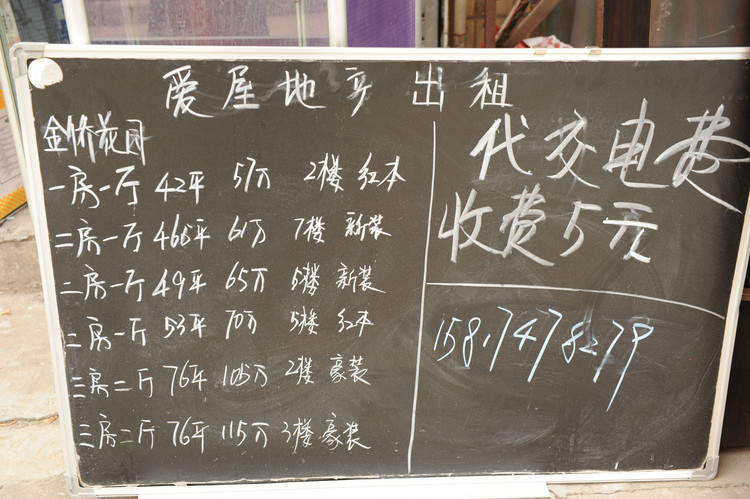 爱屋地产出租
金侨花园
一房一厅 42平 57万 2楼 红本
二房一厅 46.5平 61万 7楼 新装
二房一厅 49平 65万 6楼 新装
二房一厅 53平 70万 5楼 红本
三房二厅 76平 105万 2楼 豪装
三房二厅 76平 115万 3楼 豪装
代交电费
收费5元
15817478279